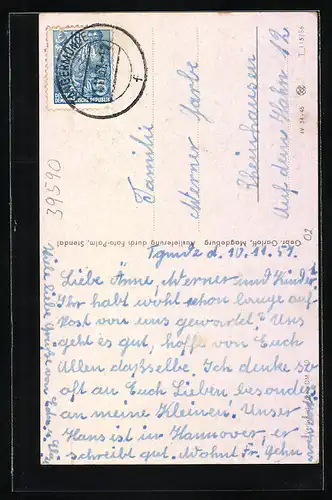 Familie
Werner Jarbe
Rheinhausen
Auf dem Hahn 12
39590
02
T 11 5156
IV-14-45
TANGERMÜNDE
DEUTSCHE DEMOKRATISCHE REPUBLIK
Gebr. Garloff, Magdeburg Auslieferung durch Foto-Palm, Stendal
Tgmde d. 10.11.57.
Liebe Änne, Werner und Kinder
Ihr habt wohl schon lange auf
Post von uns gewartet? Uns
geht es gut, hoffe von Euch
Allen dasselbe. Ich denke so
oft an Euch Lieben besonders
an meine Kleinen. Unser
Hans ist in Hannover, er
schreibt gut. Wohnt Fr. Gehn
Viele liebe Grüße